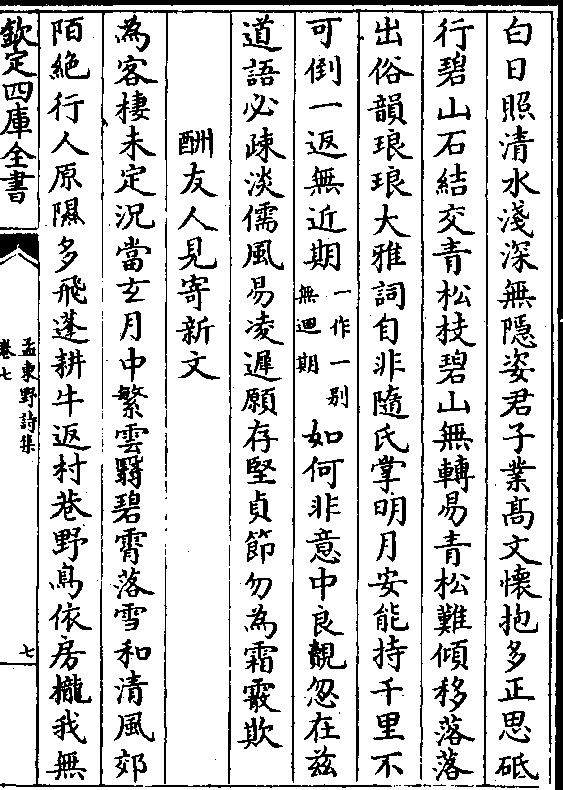 白日照清水淺深無隱姿君子業髙文懷抱多正思砥
行碧山石結交青松枝碧山無轉易青松難傾移落落
出俗韻琅琅大雅詞自非隨氏掌明月安能持千里不
可倒一返無近期一作一别無迴期如何非意中良覿忽在兹
道語必疎淡儒風易凌遲願存堅貞節勿為霜霰欺
酬友人見寄新文
為客棲未定況當玄月中繁雲翳碧霄落雪和清風郊
陌絕行人原隰多飛蓬耕牛返村巷野鳥依房櫳我無
欽定四庫全書
孟東野詩集
卷七
七